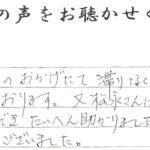 の声をお聴かせく
のおかげたて 滞りなく
おります。又松永さんに
でき たいへん助かりました
ございました。